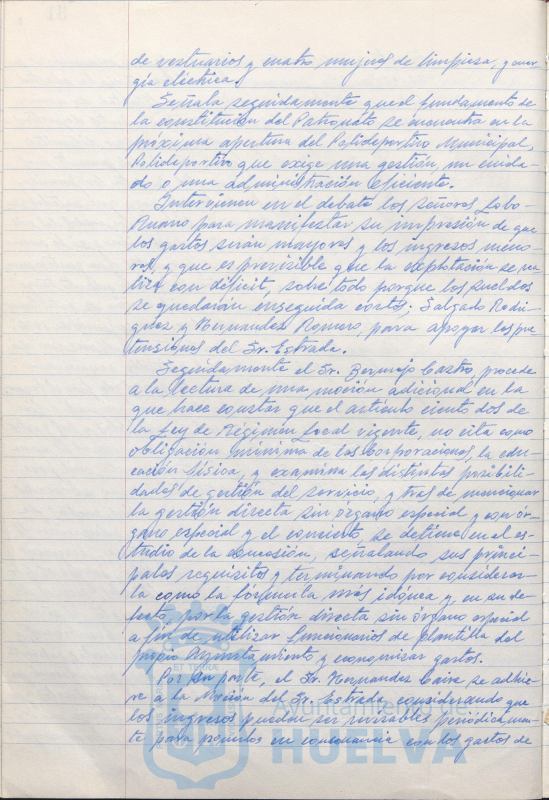 de vestuarios y cuatro mujeres de limpieza, y ener-
gía eléctrica.
Señala seguidamente que el fundamento de
la constitución del Patronato se encuentra en la
próxima apertura del Polideportivo Municipal,
Polideportivo que exige una gestión, un cuida-
do o una administración eficiente.
Intervienen en el debate los señores Lobo-
Ruano para manifestar su impresión de que
los gastos serán mayores y los ingresos meno-
res, y que es previsible que la explotación se rea-
lice con déficit, sobre todo porque los sueldos
se quedarán enseguida cortos; Salgado Rodrí-
guez y Hernandez Romero, para apoyar las pre-
tensiones del Sr. Estrada.
Seguidamente el Sr. Bermejo Castro, procede
a la lectura de una moción adicional en la
que hace constar que el artículo ciento dos de
la Ley de Régimen Local vigente, no cita como
obligación mínima de las Corporaciones la edu-
cación física, y examina las distintas posibili-
dades de gestión del servicio, y tras de mencionar
la gestión directa sin órgano especial y con ór-
gano especial y el concierto, se detiene en el es-
tudio de la concesión, señalando sus princi-
pales requisitos y terminando por considerar-
la como la fórmula más idónea y, en su de-
fecto, por la gestión directa sin órgano especial
a fin de utilizar funcionarios de plantilla del
propio Ayuntamiento y economizar gastos.
Por su parte, el Sr. Hernandez se adhie-
re a la Moción del Sr. Estrada, considerando que
los ingresos puedan ser revisables periódicamen-
te para ponerlos en consonancia con los gastos de
ET TERRA
Ayuntamiento de
HUELVA